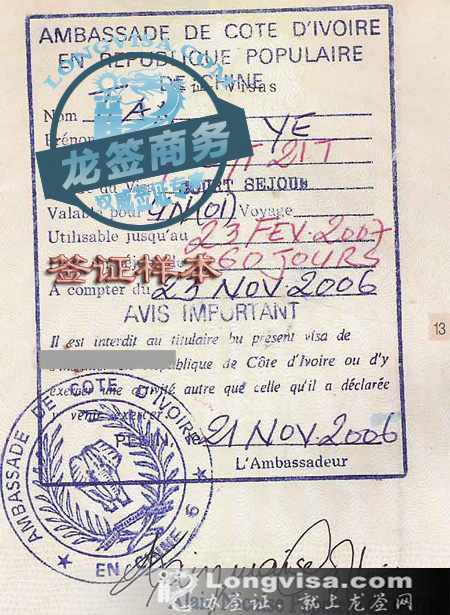 AMBASSADE DE COTE D'IVOIRE
EN REPUBLIQUE POPULAIRE
DE CHINE
Visas
LONGVISA.COM
龙签商务
权威签证专家
Nom
YE
COURT SEJOUR
Valable pour UN (01) Voyage
Utilisable jusqu'au 23 FEV. 2007
60 JOURS
签证样本
A compter du 23 NOV 2006
AVIS IMPORTANT
13
Il est interdit au titulaire bu present visa de
République de Côte d'Ivoire ou d'y
exercer une activité autre que celle qu'il a déclarée
venir exercer
PEKIN, le 21 NOV. 2006
L'Ambassadeur
AMBASSADE DE COTE D'IVOIRE
EN CHINE 9
Longvisa.com
办签证 就上龙签网